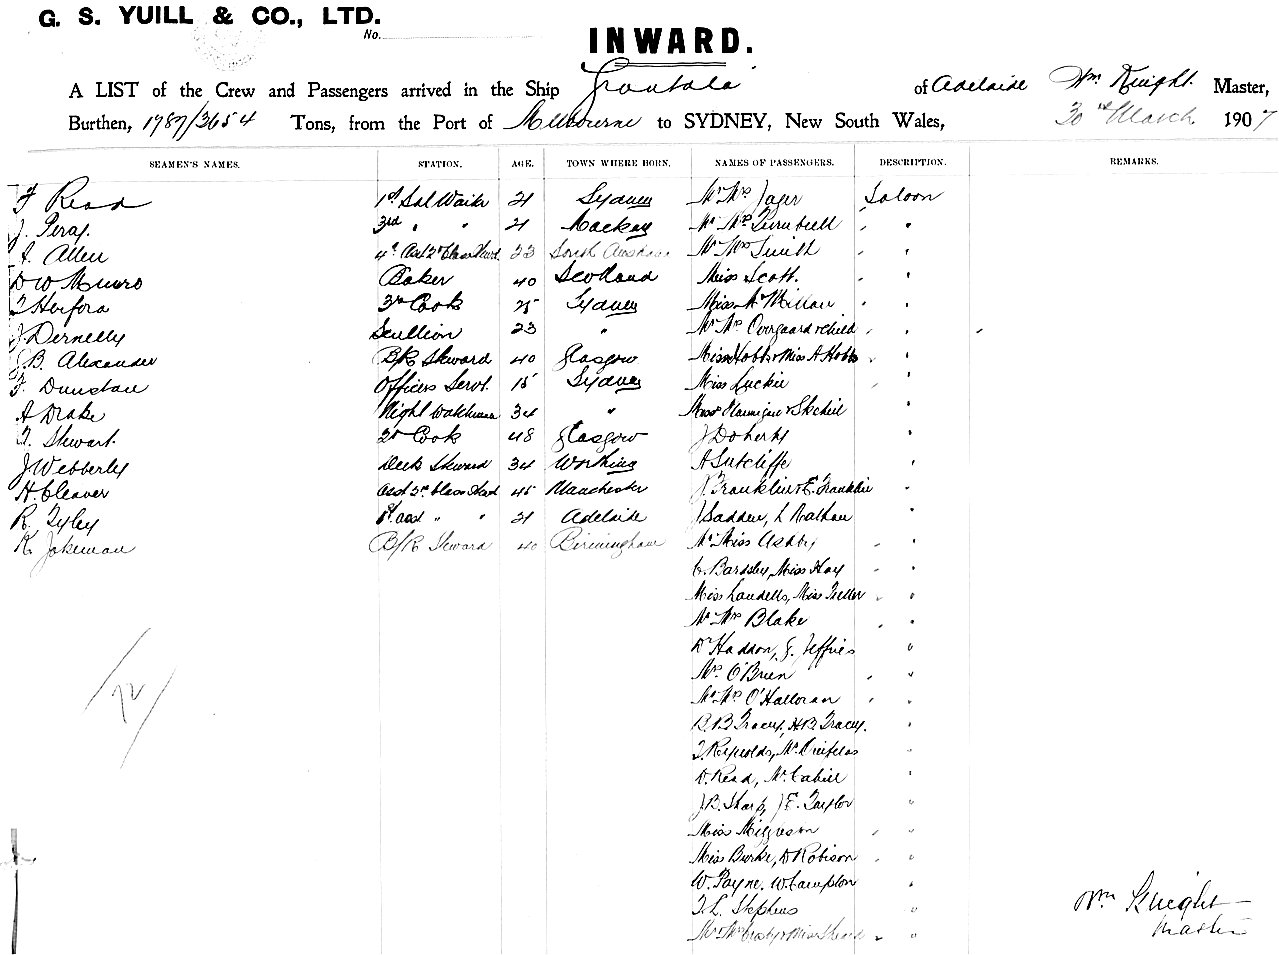 G. S. YUILL & CO., LTD.
No.
INWARD.
A LIST of the Crew and Passengers arrived in the Ship Grantala of Adelaide Wm Knight. Master,
Burthen, 1787/3654 Tons, from the Port of Melbourne to SYDNEY, New South Wales, 30 March 1907
SEAMEN'S NAMES. STATION. AGE. TOWN WHERE BORN. NAMES OF PASSENGERS. DESCRIPTION. REMARKS.
F Read 1st Sal Waiter 21 Sydney Mr Mrs Jager Saloon
J. 3rd " " 21 Mackay Mr Mrs Turnbull "
A. Allen 4th 23 South Mr Mrs Smith "
D W Munro Baker 40 Scotland Miss Scott. "
3rd Cook 25 Sydney Miss McMillan "
J Dernelly Scullion 23 " Mr Mrs Overgaard & child "
J. B. Alexander B/R Steward 40 Glasgow Miss Hobbs & Miss A Hobbs "
F. Dunstan Officers Servt. 15 Sydney Miss Luckie "
A Drake Night Watchman 34 " "
T. Stewart. 2nd Cook 48 Glasgow J Doherty "
J Webberley Deck Steward 34 Worthing A Sutcliffe "
H. Cleaver Asst 2nd Class Stwd 45 Manchester J. Franklin & E. Franklin "
R. Tyley 1st asst " " 21 Adelaide J Sadden, L Nathan "
K Jakeman B/R Steward 40 Birmingham Mr Miss Ashby "
C. Bardsley, Miss Hay "
Miss Landells, Miss "
Mr Mrs Blake "
Dr Haddon, J. Jeffries "
Mrs O'Brien "
Mr Mrs O'Halloran "
B. B Tracey, H B Tracey. "
T. Reynolds, Mr "
D. Read, Mr Cahill "
J B. Sharp, J E. Taylor "
Miss "
Miss Burke, D Robison "
W. Payne. W. Campton "
T. L. Stephens "
Mr Mrs & Miss "
72
Wm Knight
Master